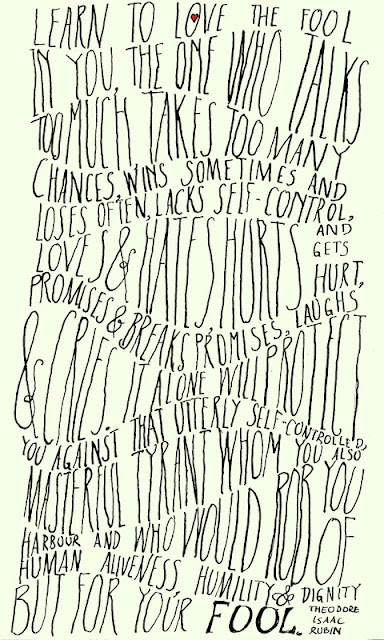 LEARN TO LOVE THE FOOL
IN YOU, THE ONE WHO TALKS
TOO MUCH TAKES TOO MANY
CHANCES, WINS SOMETIMES AND
LOSES OFTEN, LACKS SELF-CONTROL,
LOVES & HATES HURTS AND
GETS
HURT,
PROMISES & BREAKS PROMISES, LAUGHS
& CRIES. IT ALONE WILL PROTECT
YOU AGAINST THAT UTTERLY SELF-CONTROLLED,
MASTERFUL TYRANT WHOM YOU ALSO
HARBOUR AND WHO WOULD ROB YOU
OF
HUMAN ALIVENESS, HUMILITY & DIGNITY
BUT FOR YOUR FOOL.
THEODORE
ISAAC
RUBIN